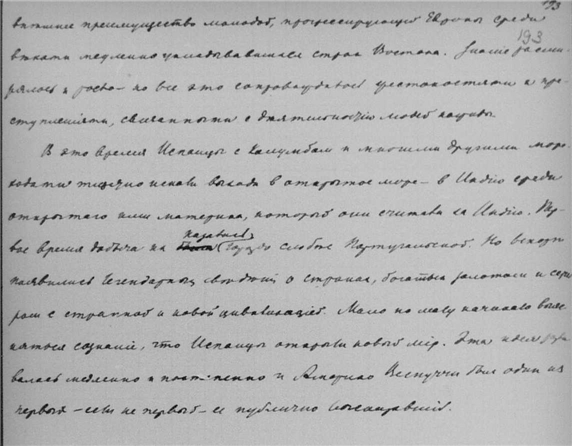 193
193
преимущество молодой, прогрессирующей Европы среди
медленно стран Востока. Знание расши-
рялось и росло – но все это сопровождалось жестокостями и пре-
ступлениями, связанными с деятельностью людей наживы.
В это время Испанцы с Колумбом и многими другими море-
ходами тщетно искали выхода в открытое море – в Индию среди
открытого ими материка, который они считали за Индию. Пер-
вое время добыча их казалась гораздо слабее Португальской. Но вскоре
появились легендарные о странах, богатых золотом и сереб-
ром с странной и новой цивилизацией. Мало по малу начинало выяс-
няться сознание, что Испанцы открыли новый мір. Эта идея
валась медленно и постепенно и Америго Веспуччи был один из
первых – если не первый – ее публично высказавший.